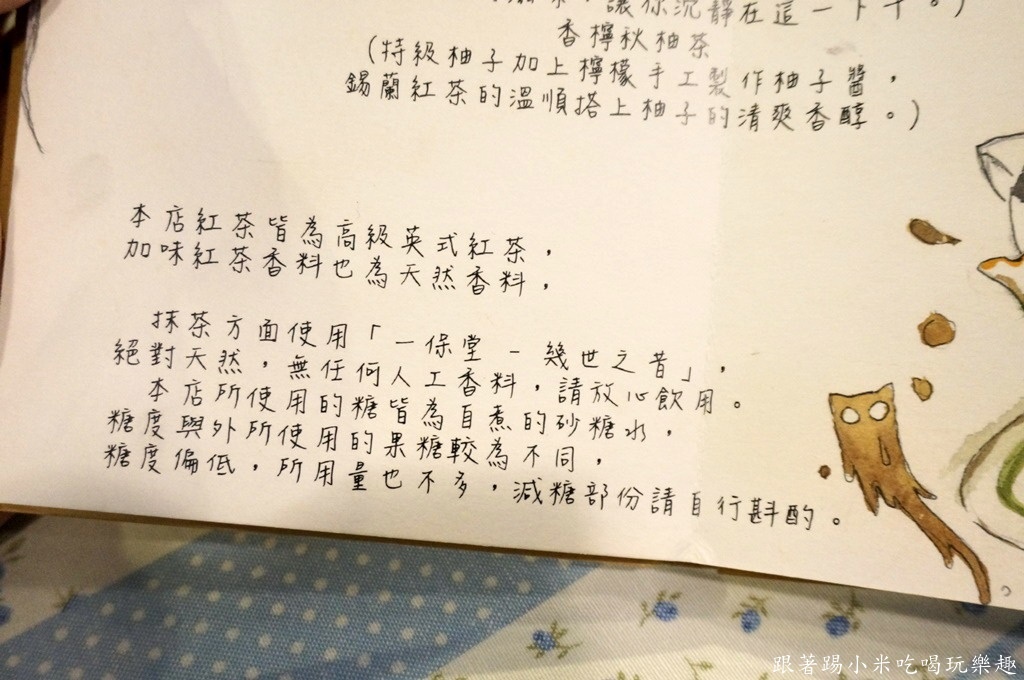 讓你沉靜在這一下午。)
香檸秋柚茶
(特級柚子加上檸檬手工製作柚子醬，
錫蘭紅茶的溫順搭上柚子的清爽香醇。)
本店紅茶皆為高級英式紅茶，
加味紅茶香料也為天然香料，
抹茶方面使用「一保堂－幾世之昔」，
絕對天然，無任何人工香料，請放心飲用。
本店所使用的糖皆為自煮的砂糖水，
糖度與外所使用的果糖較為不同，
糖度偏低，所用量也不多，減糖部份請自行斟酌。
跟著踢小米吃喝玩樂趣